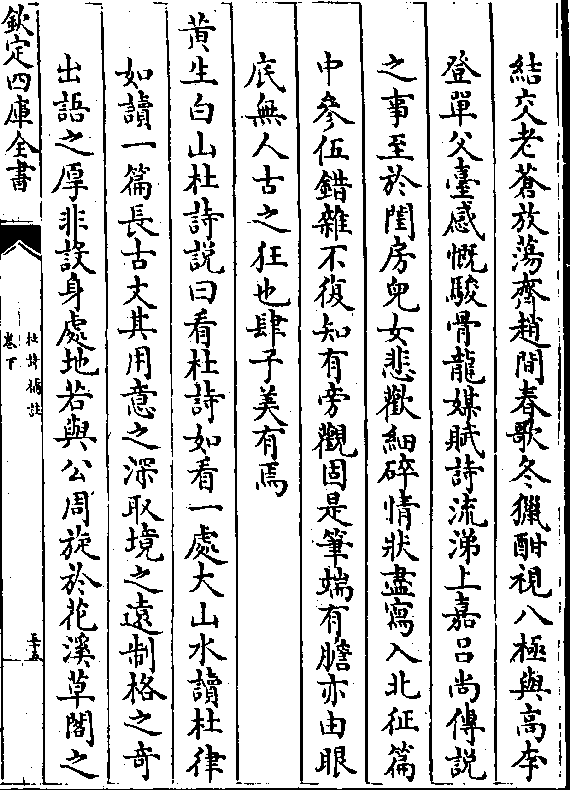 結交老蒼放蕩齊趙間春歌冬獵酣視八極與高李
登單父臺感慨駿骨龍媒賦詩流涕上嘉呂尚傅説
之事至於閨房兒女悲歡細碎情狀盡寫入北征篇
中參伍錯雜不復知有旁觀固是筆端有膽亦由眼
底無人古之狂也肆子美有焉
黄生白山杜詩説曰看杜詩如看一處大山水讀杜律
如讀一篇長古文其用意之深取境之遠制格之奇
出語之厚非設身處地若與公周旋於花溪草閣之
欽定四庫全書
杜詩補註
卷下
三十五